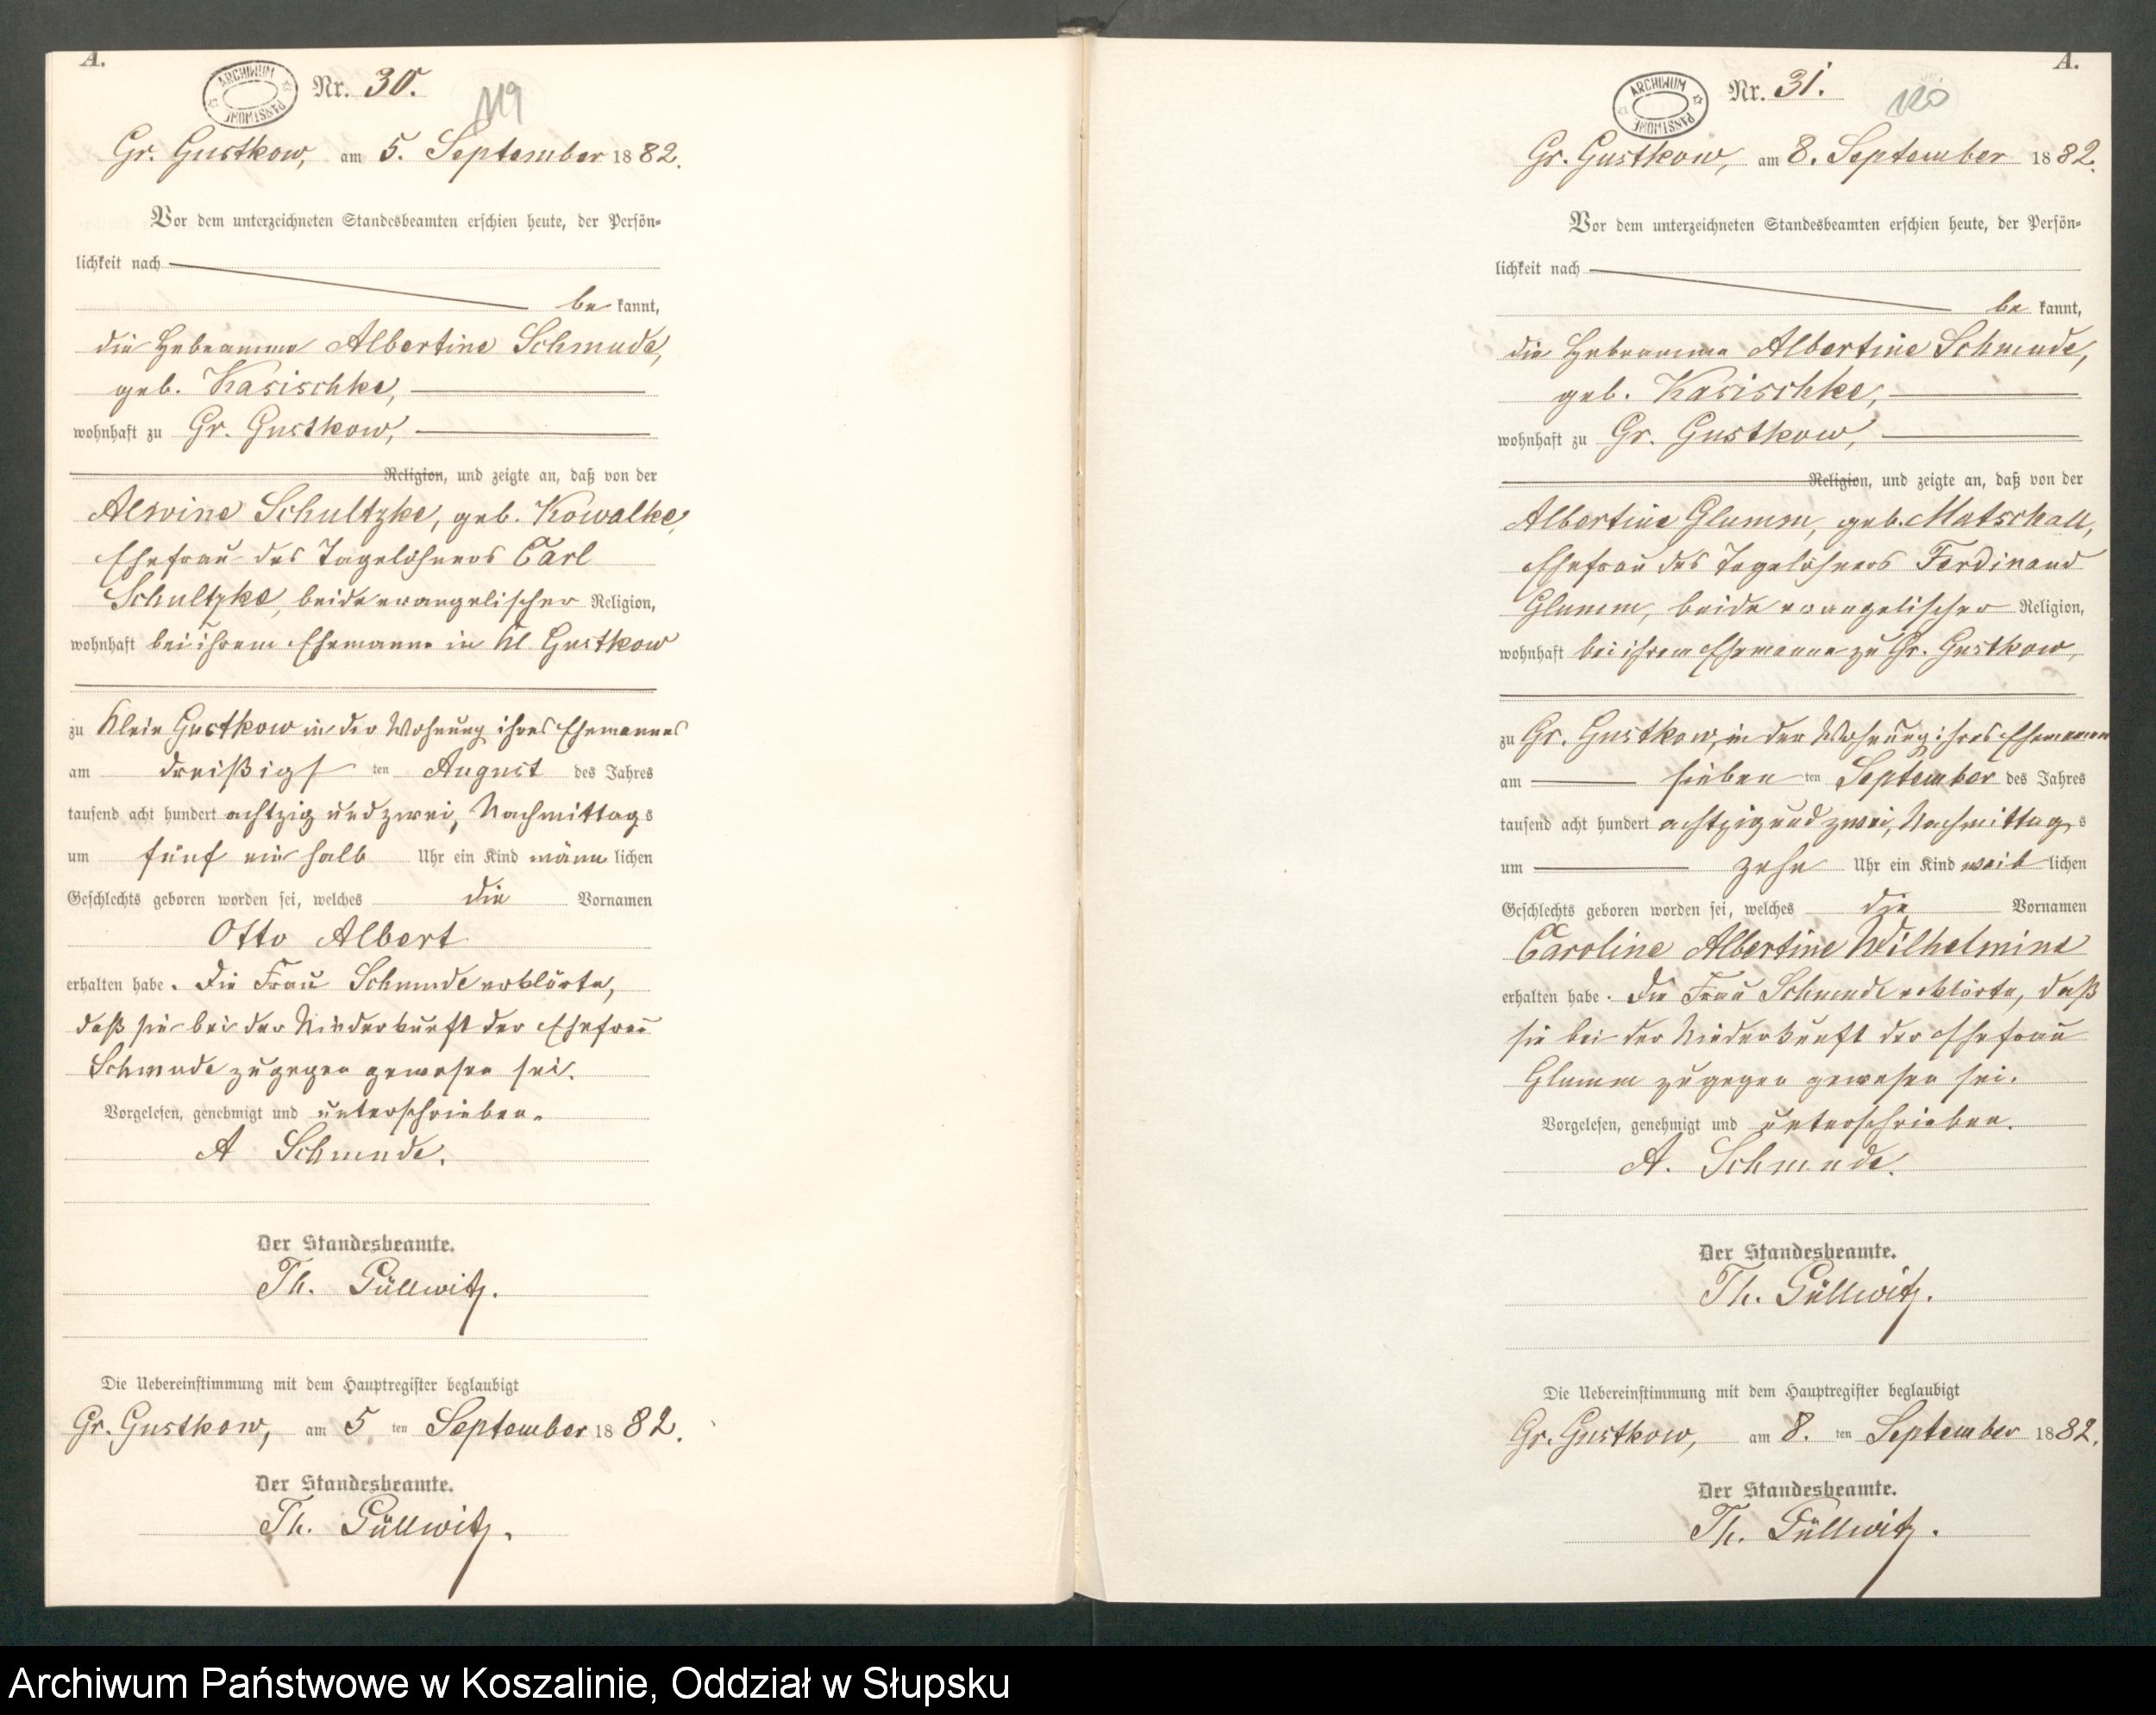 A.
ARCHIWUM PAŃSTWOWE
Nr. 30.
119
Gr. Gustkow, am 5. September 1882.
Vor dem unterzeichneten Standesbeamten erschien heute, der Persön-
lichkeit nach
be kannt,
die Hebeamme Albertine Schmude,
geb. Kasischke,
wohnhaft zu Gr. Gustkow,
Religion, und zeigte an, daß von der
Alwine Schultzke, geb. Kowalke,
Ehefrau des Tagelöhners Carl
Schultzke, beide evangelischer Religion,
wohnhaft bei ihrem Ehemanne in Kl. Gustkow
zu Klein Gustkow in der Wohnung ihres Ehemannes
am dreißigs ten August des Jahres
tausend acht hundert achtzig und zwei, Nachmittag s
um fünf ein halb Uhr ein Kind männ lichen
Geschlechts geboren worden sei, welches die Vornamen
Otto Albert
erhalten habe. Die Frau Schmude erklärte,
daß sie bei der Niederkunft der Ehefrau
Schmude zugegen gewesen sei.
Vorgelesen, genehmigt und unterschrieben.
A Schmude.
Der Standesbeamte.
Th. Güllwitz.
Die Uebereinstimmung mit dem Hauptregister beglaubigt
Gr. Gustkow, am 5 ten September 1882.
Der Standesbeamte.
Th. Güllwitz.
A.
ARCHIWUM PAŃSTWOWE
Nr. 31.
120
Gr. Gustkow, am 8. September 1882.
Vor dem unterzeichneten Standesbeamten erschien heute, der Persön-
lichkeit nach
be kannt,
die Hebeamme Albertine Schmude,
geb. Kasischke,
wohnhaft zu Gr. Gustkow,
Religion, und zeigte an, daß von der
Albertine Glumm, geb. Matschall,
Ehefrau des Tagelöhners Ferdinand
Glumm, beide evangelischer Religion,
wohnhaft bei ihrem Ehemanne zu Gr. Gustkow,
zu Gr. Gustkow, in der Wohnung ihres Ehemannes
am sieben ten September des Jahres
tausend acht hundert achtzig und zwei, Nachmittag s
um zehn Uhr ein Kind weib lichen
Geschlechts geboren worden sei, welches die Vornamen
Caroline Albertine Wilhelmine
erhalten habe. Die Frau Schmude erklärte, daß
sie bei der Niederkunft der Ehefrau
Glumm zugegen gewesen sei.
Vorgelesen, genehmigt und unterschrieben.
A. Schmude.
Der Standesbeamte.
Th. Güllwitz.
Die Uebereinstimmung mit dem Hauptregister beglaubigt
Gr. Gustkow, am 8. ten September 1882.
Der Standesbeamte.
Th. Güllwitz.
Archiwum Państwowe w Koszalinie, Oddział w Słupsku